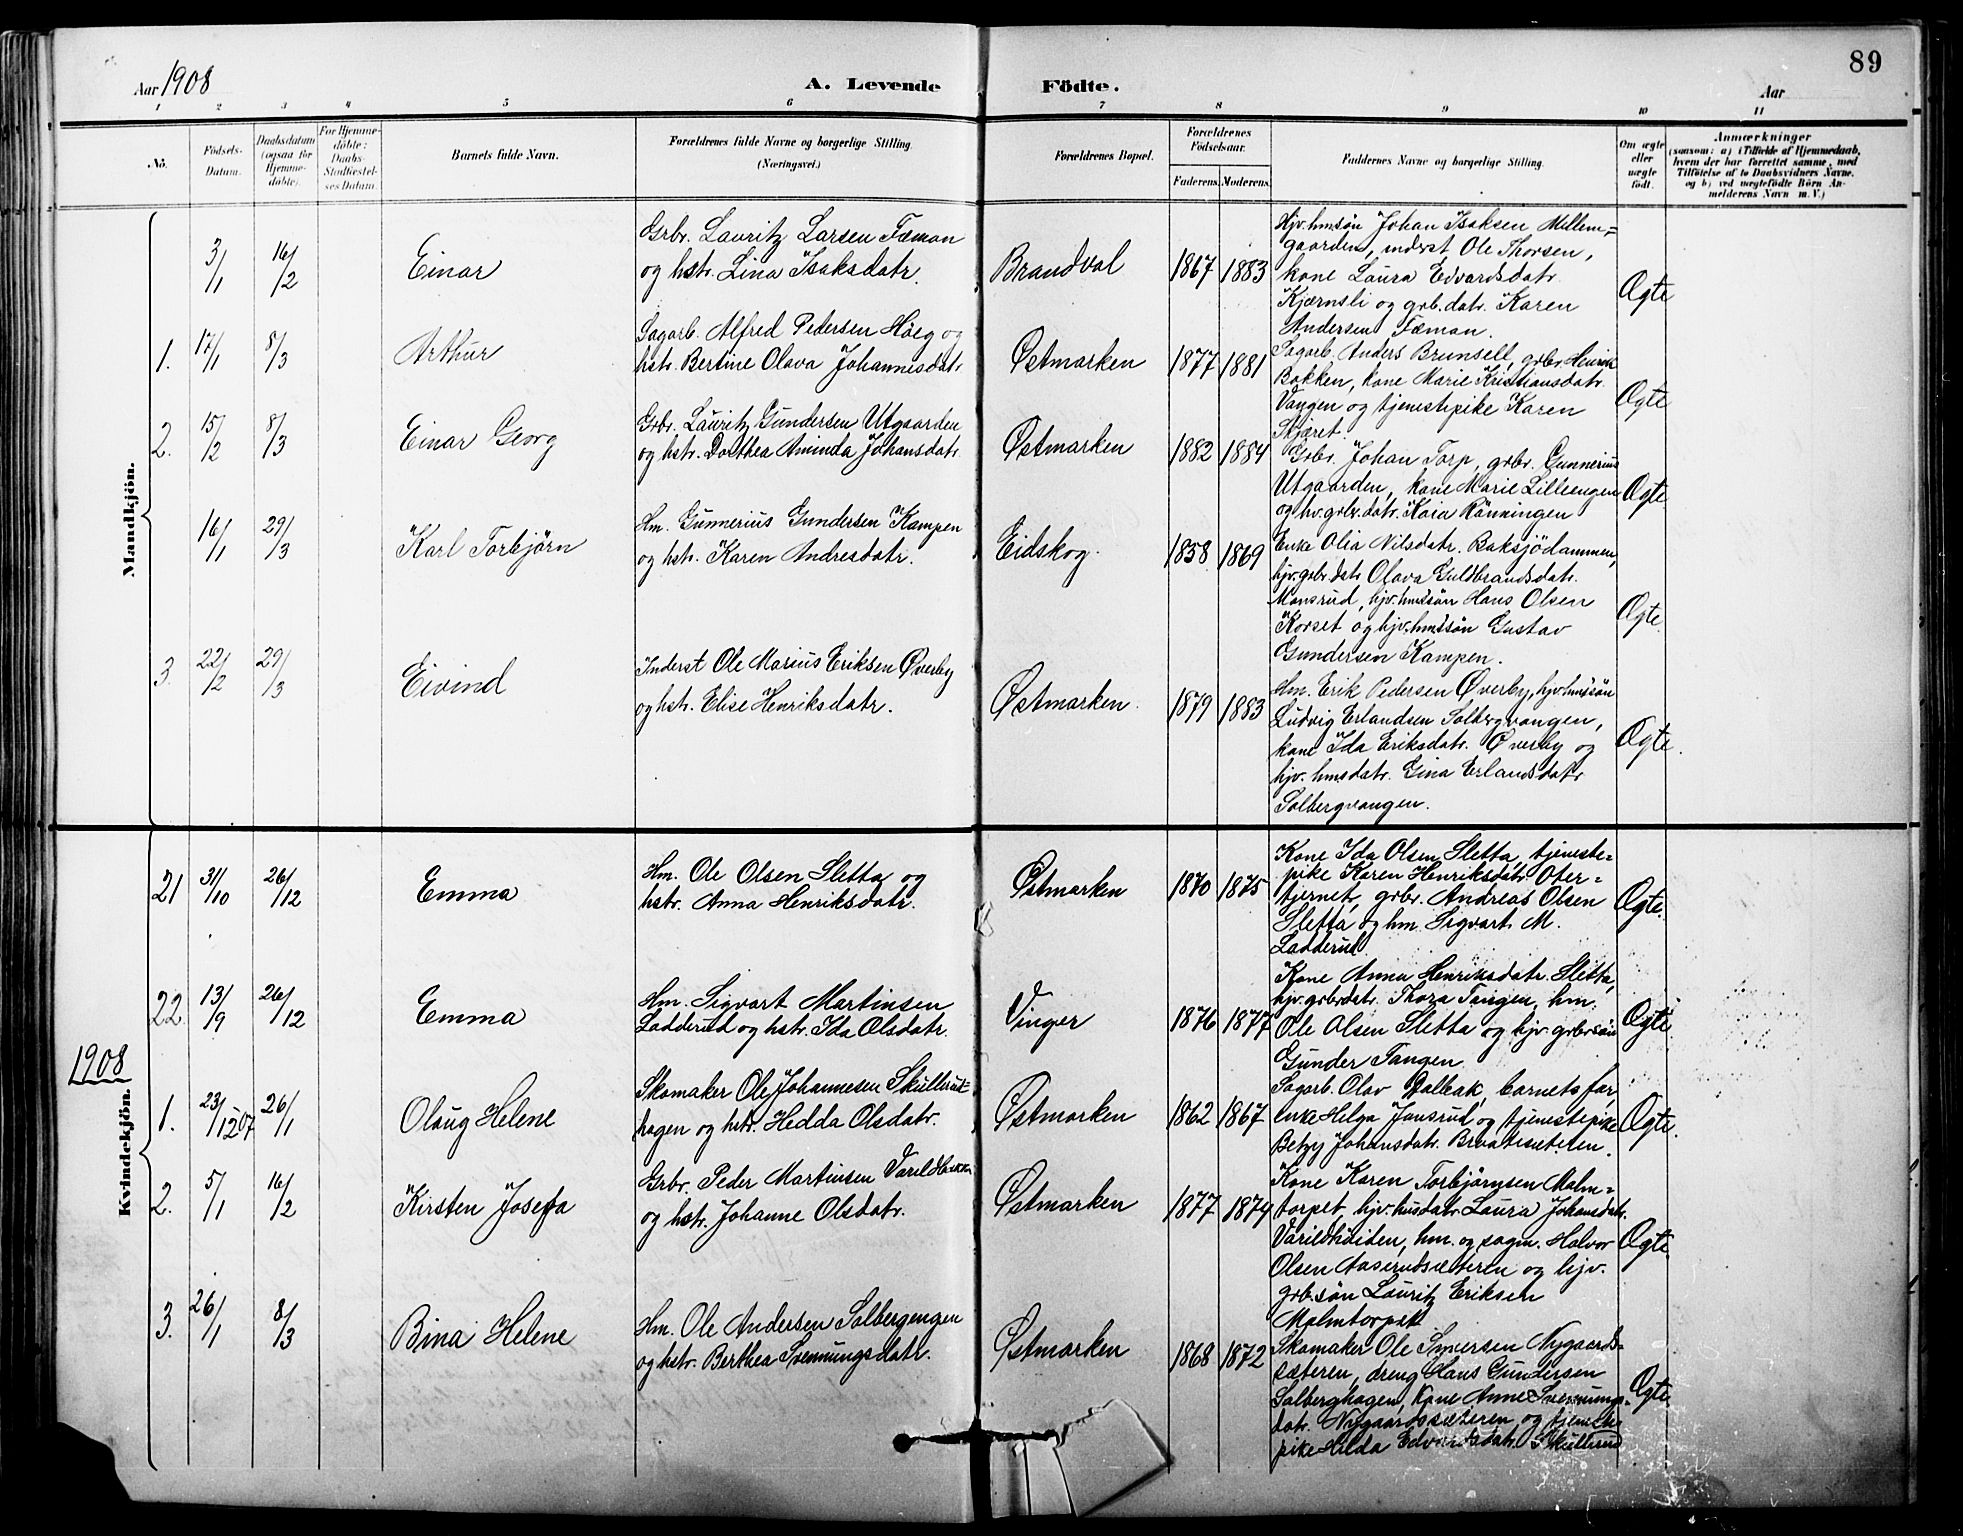 89
Aar 1908
A. Levende Födte.
Aar
1 2 3 4 5 6 7 8 9 10 11
No.
Födsels-
Datum.
Daabsdatum
(ogsaa for
Hjemme-
döbte).
For Hjemme-
döbte:
Daabs-
Stadfæstel-
ses Datum.
Barnets fulde Navn.
Forældrenes fulde Navne og borgerlige Stilling.
(Næringsvei.)
Forældrenes Bopæl.
Forældrenes
Födselsaar.
Faderens. Moderens.
Faddernes Navne og borgerlige Stilling.
Om ægte
eller
uægte
födt.
Anmærkninger
(saasom: a) i Tilfælde af Hjemmedaab,
hvem der har forrettet samme, med
Tilföielse af to Daabsvidners Navne.
og b) ved uægtefödte Börn An-
melderens Navn m. V.)
Mandkjön.
3/1 16/2 Einar
Grbr. Lauritz Larsen Fæmon
og hstr. Lina Isaksdatr.
Brandval 1867 1883
Hjv. hmssön Johan Isaksen Millem=
gaarden, inderst Ole Thorsen,
kone Laura Edvardsdatr.
Kjærnsli og grb.datr. Karen
Andersen Fæmon.
Ægte
1. 17/1 8/3 Arthur
Sagarb. Alfred Pedersen Höeg og
hstr. Bertine Olava Johannesdatr.
Østmarken 1877 1881
Sagarb. Anders Brunsell, grbr. Henrik
Bakken, kone Marie Kristiansdatr.
Vangen og tjenestepike Karen
Skjæret.
Ægte
2. 15/2 8/3 Einar Georg
Grbr. Lauritz Gundersen Utgaarden
og hstr. Dorthea Aminda Johansdatr.
Østmarken 1882 1884
Grbr. Johan Torp, grbr. Gunnerius
Utgaarden, kone Marie Lilleengen
og hv. grbr. datr. Kaia Rönningen
Ægte
16/1 29/3 Karl Torbjörn
Hm. Gunnerius Gundersen Kampen
og hstr. Karen Andresdatr.
Eidskog. 1858 1869
Enke Olia Nilsdatr. Baksjödammen,
hjv. grbr. datr. Olava Guldbrandsdatr.
Monsrud, hjv. hmssön Hans Olsen
Korset og hjv. hmssön Gustav
Gundersen Kampen.
Ægte.
3. 22/2 29/3 Eivind
Inderst Ole Marius Eriksen Øverby
og hstr. Elise Henriksdatr.
Østmarken. 1879 1883
Hm. Erik Pedersen Øverby, hjv. hmssön
Ludvig Erlandsen Solbergvangen,
kone Ida Eriksdatr. Øverby og
hjv. hmsdatr. Gina Erlandsdatr
Solbergvangen.
Ægte.
1908
Kvindekjön.
21 31/10 26/12 Emma
Hm. Ole Olsen Sletta og
hstr. Anna Henriksdatr.
Østmarken 1870 1875
Kone Ida Olsen Sletta, tjeneste=
pike Karen Henriksdatr. Oter=
tjernet, grbr. Andreas Olsen
Sletta og hm. Sigvart M.
Ladderud
Ægte.
22. 13/9 26/12 Emma
Hm. Sigvart Martinsen
Ladderud og hstr. Ida Olsdatr.
Vinger 1876 1877
Kone Anna Henriksdatr. Sletta,
hjv. grbrdatr. Thora Tangen, hm.
Ole Olsen Sletta og hjv grbrsön
Gunder Tangen
Ægte.
1. 23/12 07 26/1 Olaug Helene
Skomaker Ole Johannesen Skullerud=
hagen og hstr. Hedda Olsdatr.
Østmarken 1862 1867
Sagarb. Olav Dalbak, barnets far
enke Helga Jansrud og tjenestepike
Betzy Johansdatr.
Ægte.
2. 5/1 16/2 Kirsten Josefa
Grbr. Peder Martinsen
og hstr. Johanne Olsdatr.
Østmarken 1877 1874
Kone Karen Torbjörnsen Malm=
torpet, hjv. husdatr. Laura Johansdatr.
Varildhiiden, hm. og sagm. Halvor
Olsen Aaserudsæteren og hjv.
grb.sön Lauritz Eriksen
Malmtorpet
Ægte.
3. 26/1 8/3 Bina Helene
Hm. Ole Andersen Solbergengen
og hstr. Berthea Svennungsdatr.
Østmarken 1868 1872
Skomaker Ole Syversen Nygaards=
sæteren, dreng Hans Gundersen
Solberghagen, kone Anne Svennungs=
datr. Nygaardssæteren og tjeneste
pike Hilda Edvardsdatr. Skullerud
Ægte.